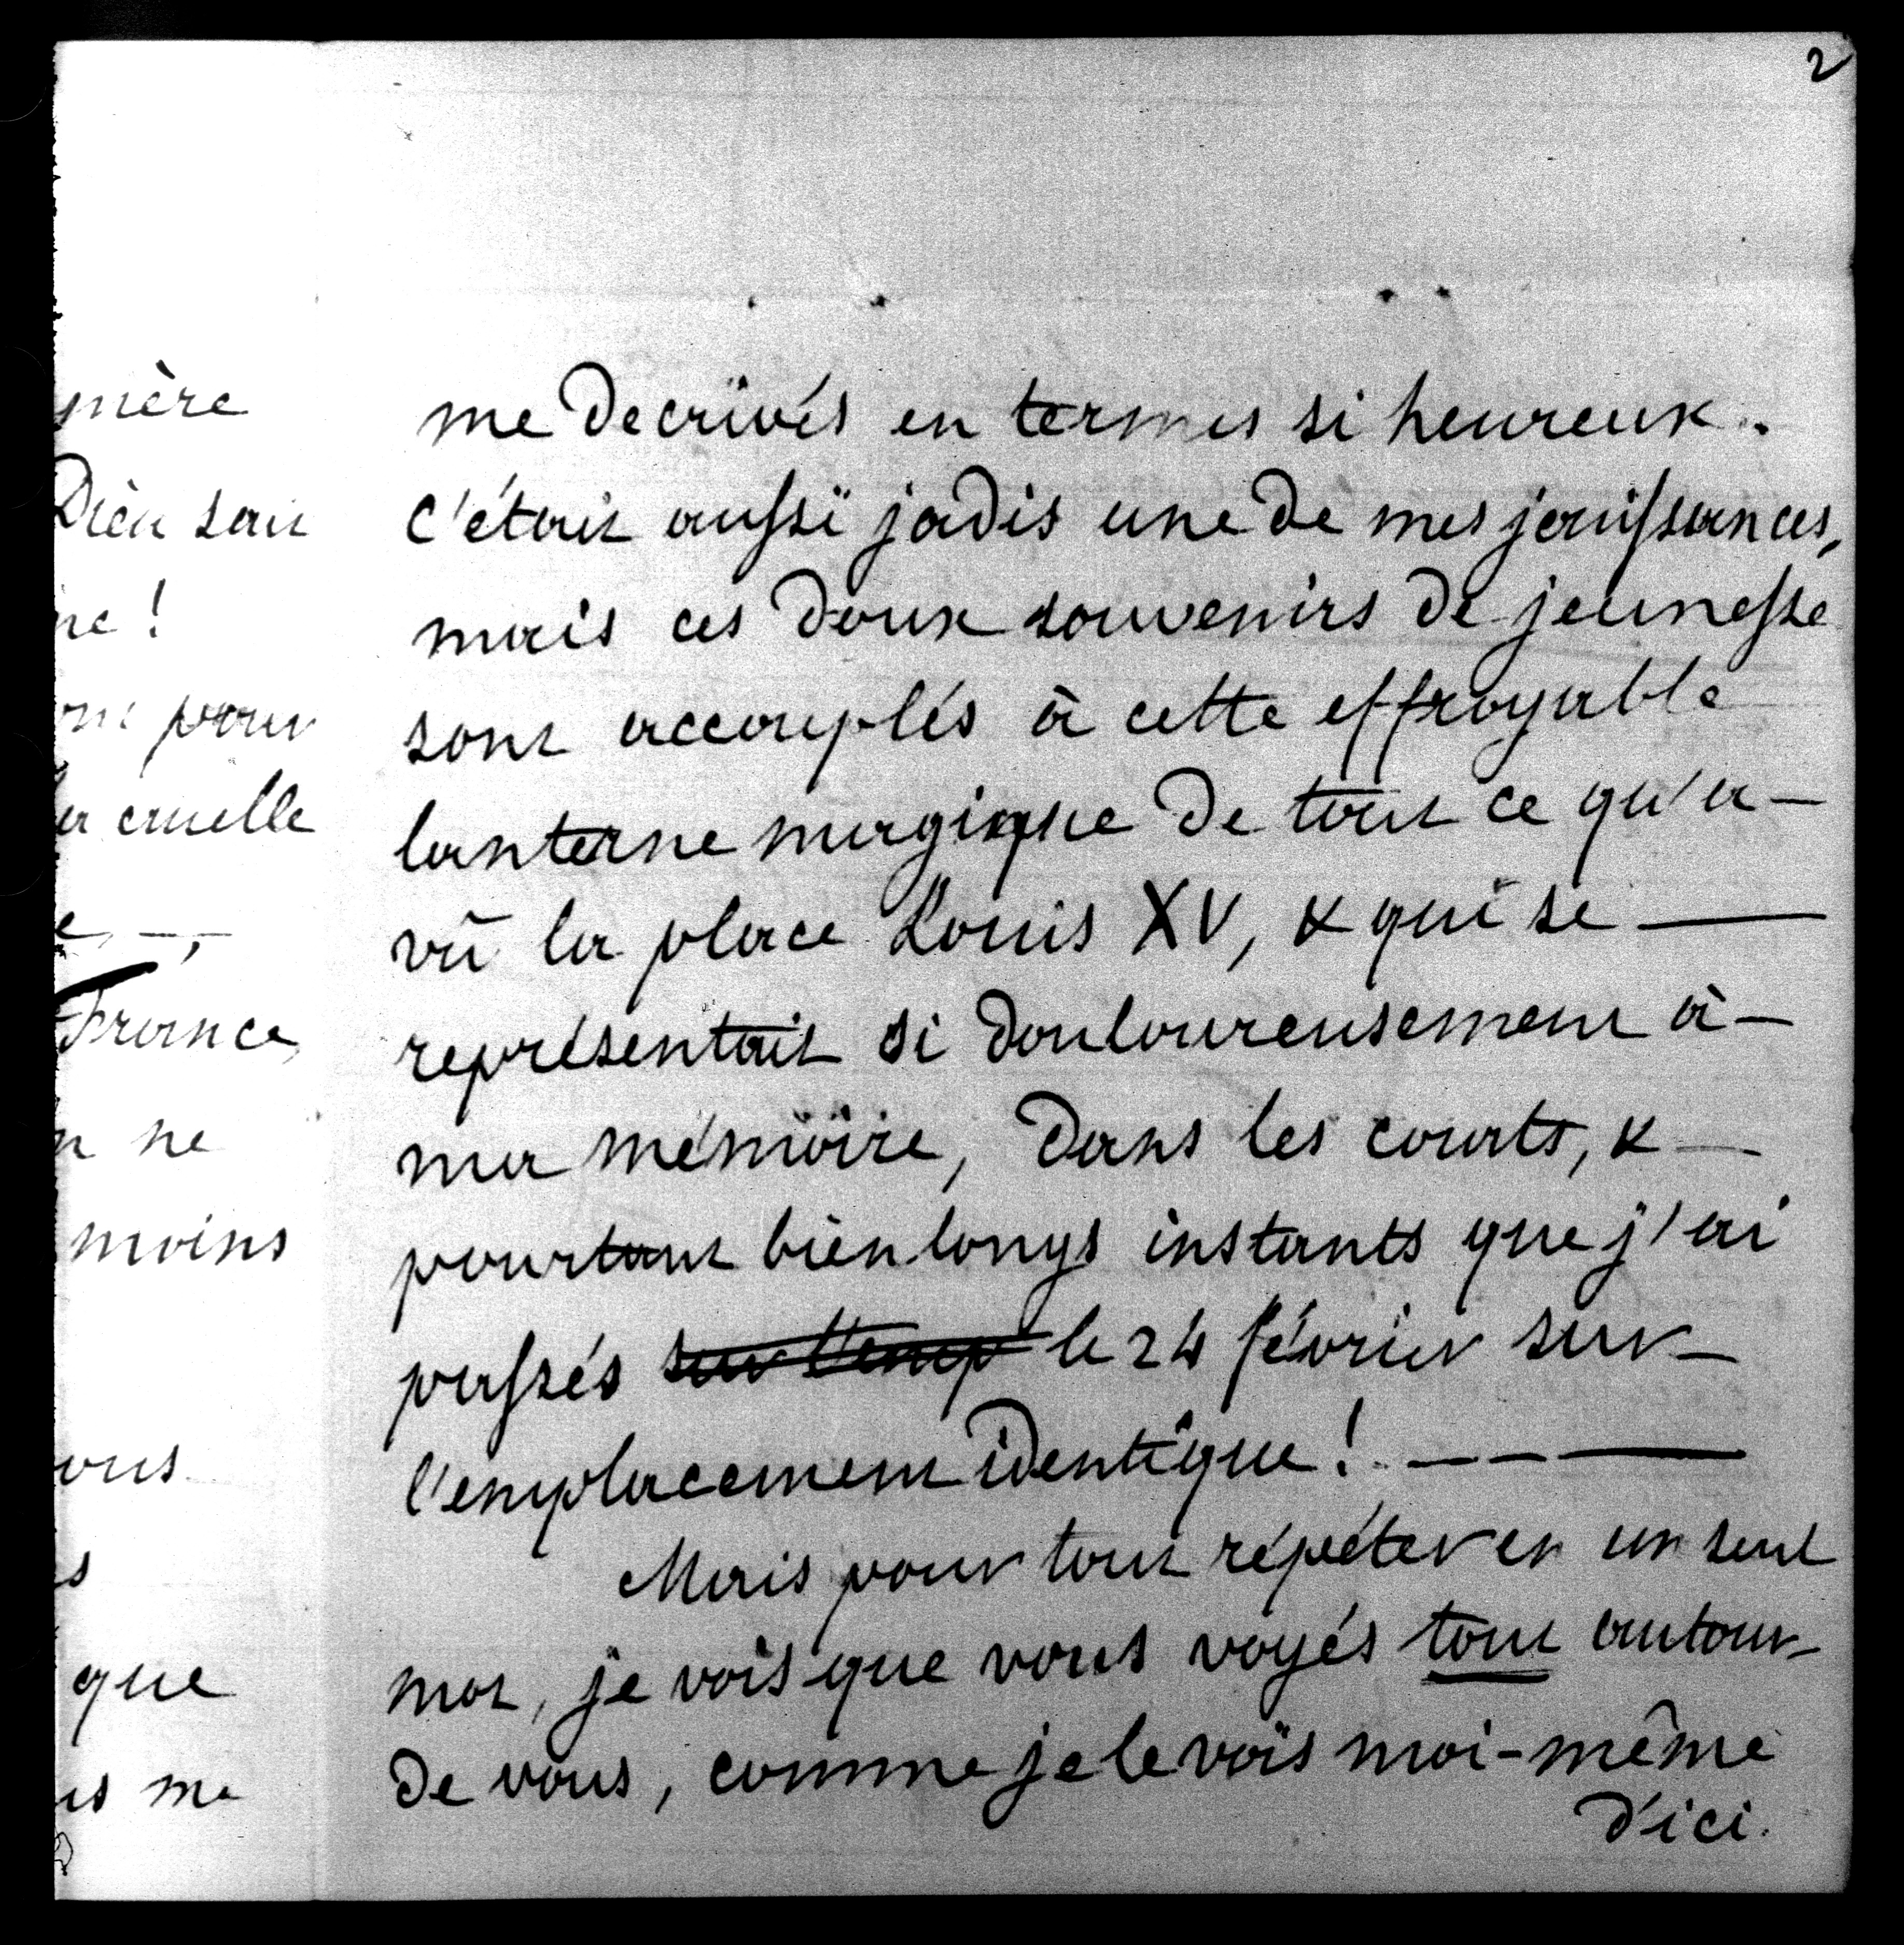 2
mère
Dieu sait
ne !
pour
la cruelle
France,
ne
moins
vous
que
me
me decrivés en termes si heureux.
C'était aussi jadis une de mes jouissances,
mais ces doux souvenirs de jeunesse
sont accouplés à cette effroyable
lanterne magique de tout ce qu'a —
vû la place Louis XV, & qui se —
représentait si douloureusement à —
ma mémoire, dans les courts, & —
pourtant bien longs instants que j'ai
passés sur l'emp le 24 février sur —
l'emplacement identique ! — — —
Mais pour tout répéter en un seul
mot, je vois que vous voyés tout autour
de vous, comme je le vois moi-même
d'ici.